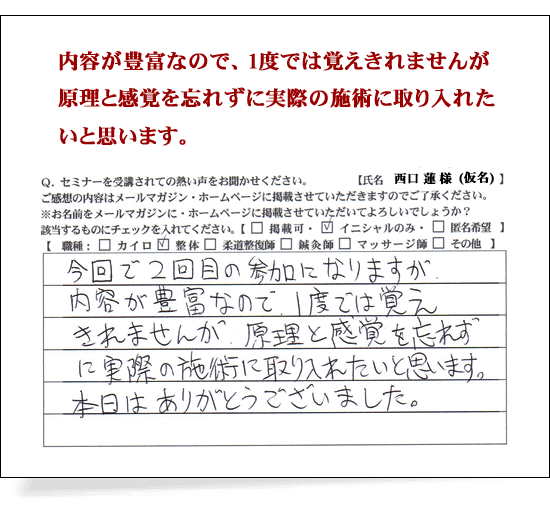 内容が豊富なので、1度では覚えきれませんが
原理と感覚を忘れずに実際の施術に取り入れた
いと思います。
Q. セミナーを受講されての熱い声をお聞かせください。　【氏名 西口 蓮 様 (仮名) 】
ご感想の内容はメールマガジン・ホームページに掲載させていただきますのでご了承ください。
※お名前をメールマガジンに・ホームページに掲載させていただいてよろしいでしょうか？
該当するものにチェックを入れてください。【 □ 掲載可・ ☑ イニシャルのみ・ □ 匿名希望 】
【 職種： □ カイロ ☑ 整体 □ 柔道整復師 □ 鍼灸師 □ マッサージ師 □ その他 】
今回で2回目の参加になりますが
内容が豊富なので、1度では覚え
きれませんが、原理と感覚を忘れず
に実際の施術に取り入れたいと思います。
本日はありがとうございました。